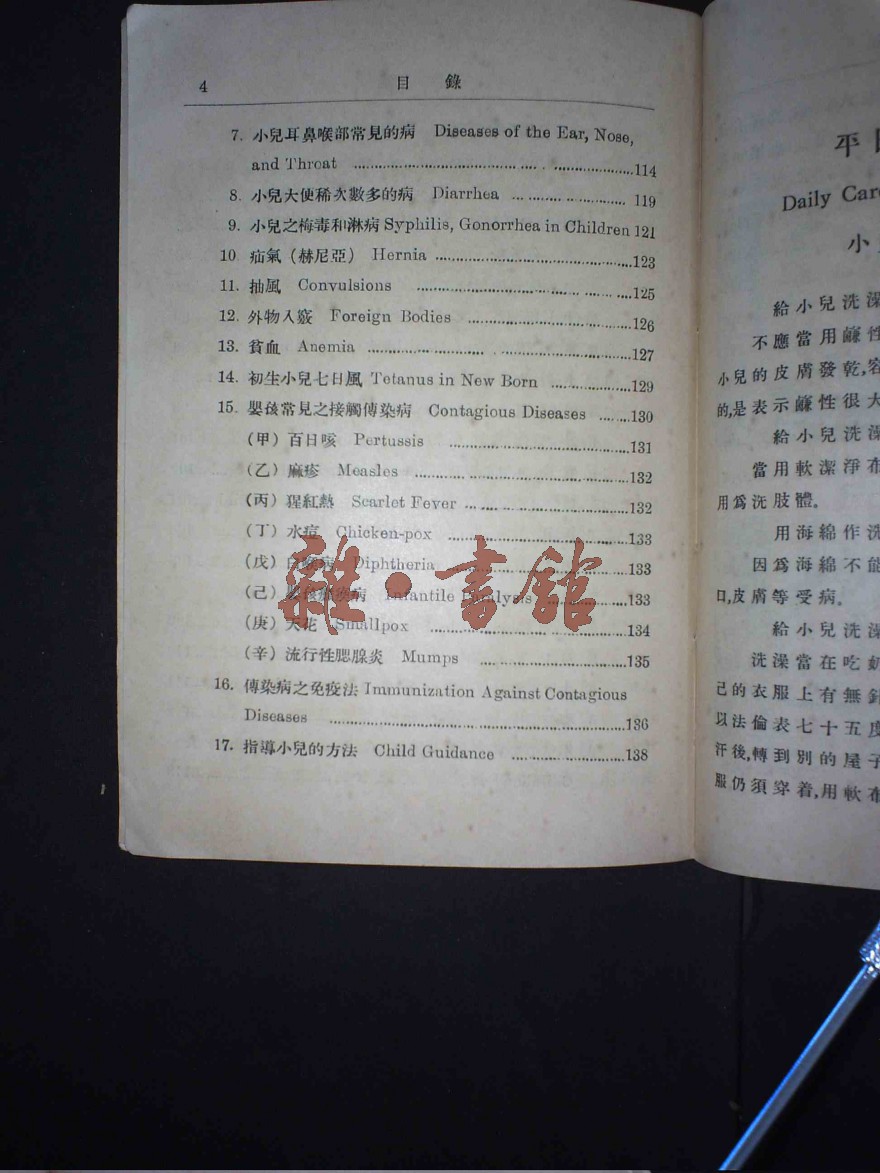 4 目錄
7. 小兒耳鼻喉部常見的病 Diseases of the Ear, Nose,
and Throat ....................114
8. 小兒大便稀次數多的病 Diarrhea .................... 119
9. 小兒之梅毒和淋病 Syphilis, Gonorrhea in Children 121
10. 疝氣（赫尼亞） Hernia ....................123
11. 抽風 Convulsions ....................125
12. 外物入竅 Foreign Bodies ....................126
13. 貧血 Anemia ....................127
14. 初生小兒七日風 Tetanus in New Born ....................129
15. 嬰孩常見之接觸傳染病 Contagious Diseases ....................130
（甲）百日咳 Pertussis ....................131
（乙）麻疹 Measles ....................132
（丙）猩紅熱 Scarlet Fever ....................132
（丁）水痘 Chicken-pox ....................133
（戊）白喉病 Diphtheria ....................133
（己）嬰孩癱瘓病 Infantile Paralysis ....................133
（庚）天花 Smallpox ....................134
（辛）流行性腮腺炎 Mumps ....................135
16. 傳染病之免疫法 Immunization Against Contagious
Diseases ....................136
17. 指導小兒的方法 Child Guidance ....................138
雜·書館
平
Daily Care
小
給小兒洗澡
不應當用鹼性
小兒的皮膚發乾,容
的,是表示鹼性很大
給小兒洗澡
當用軟潔淨布
用爲洗肢體。
用海綿作洗
因爲海綿不能
口,皮膚等受病。
給小兒洗澡
洗澡當在吃奶
己的衣服上有無針
以法倫表七十五度
汗後,轉到別的屋子
服仍須穿着,用軟布